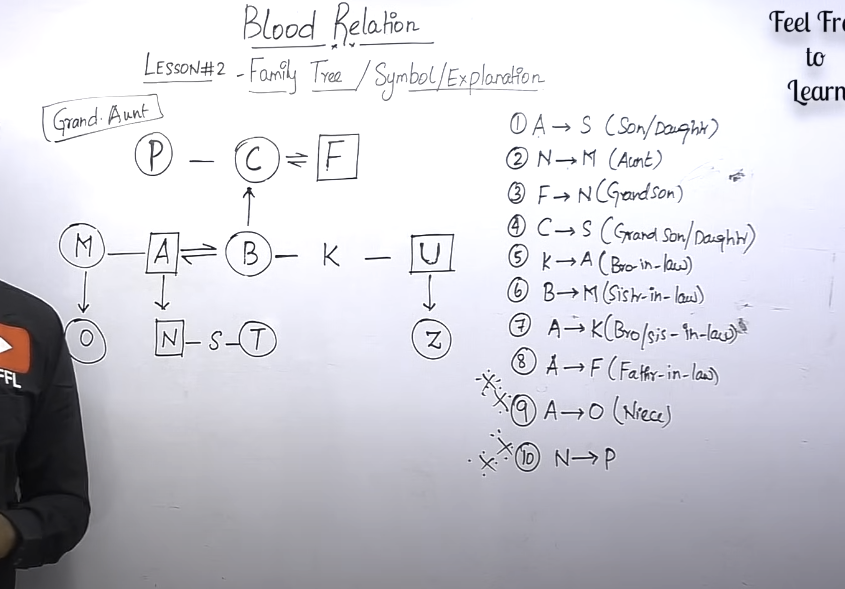 Blood Relation
LESSON#2 - Family Tree / Symbol/Explanation
Feel Fre
to
Learn
Grand. Aunt
P — C ⇌ F
M — A ⇌ B — K — U
O N — S — T Z
① A → S (Son/Daughtr)
② N → M (Aunt)
③ F → N (Grandson)
④ C → S (Grand Son/Daughtr)
⑤ K → A (Bro-in-law)
⑥ B → M (Sistr-in-law)
⑦ A → K (Bro/sis-in-law)
⑧ A → F (Fathr-in-law)
⑨ A → O (Niece)
⑩ N → P
FFL